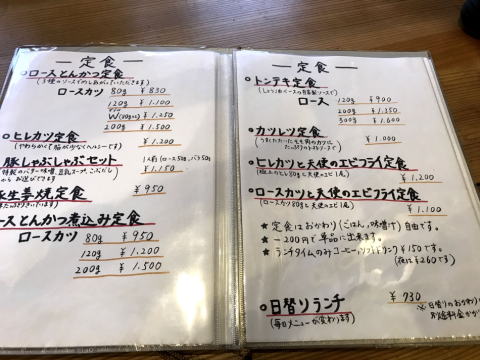 ー 定食 ー
ロースとんかつ定食
ロースカツ 80g ¥830
120g ¥1.100
W(80g×2) ¥1.250
200g ¥1.500
ヒレカツ定食
(やわらかくて脂が少なくヘルシーです) ¥1.200
豚しゃぶしゃぶセット
1人前(ロース50g、バラ50g)
¥1.150
からお選びできます
生姜焼定食 ¥950
ースとんかつ煮込み定食
ロースカツ 80g ¥950
120g ¥1.200
200g ¥1.500
ー 定食 ー
トンテキ定食
ロース 120g ¥900
200g ¥1.350
300g ¥1.600
カツレツ定食
¥1.000
ヒレカツと天使のエビフライ定食
¥1.200
ロースカツと天使のエビフライ定食
(ロースカツ80gと天使のエビ1尾)
¥1.100
★ 定食はおかわり(ごはん,味噌汁)自由です。
★ −200円で単品に出来ます。
★ ランチタイムのみコーヒー,ソフトドリンク¥150です。
(夜は¥260です)
日替りランチ ¥730
(毎日メニューが変わります)
※日替りのおかわり
別途料金がか